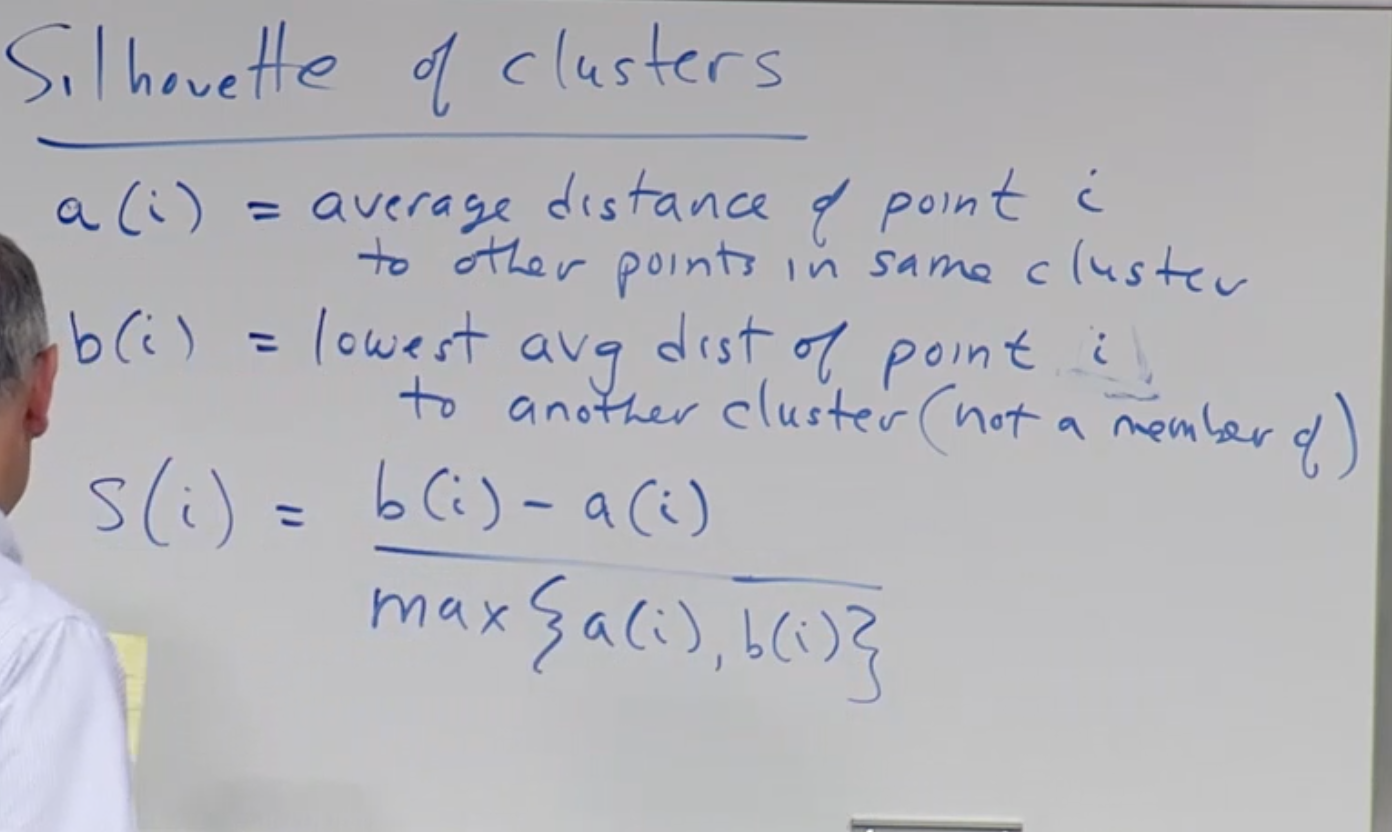 Silhouette of clusters
a(i) = average distance of point i
to other points in same cluster
b(i) = lowest avg dist of point i
to another cluster (not a member of)
S(i) = b(i) - a(i)
max {a(i), b(i)}